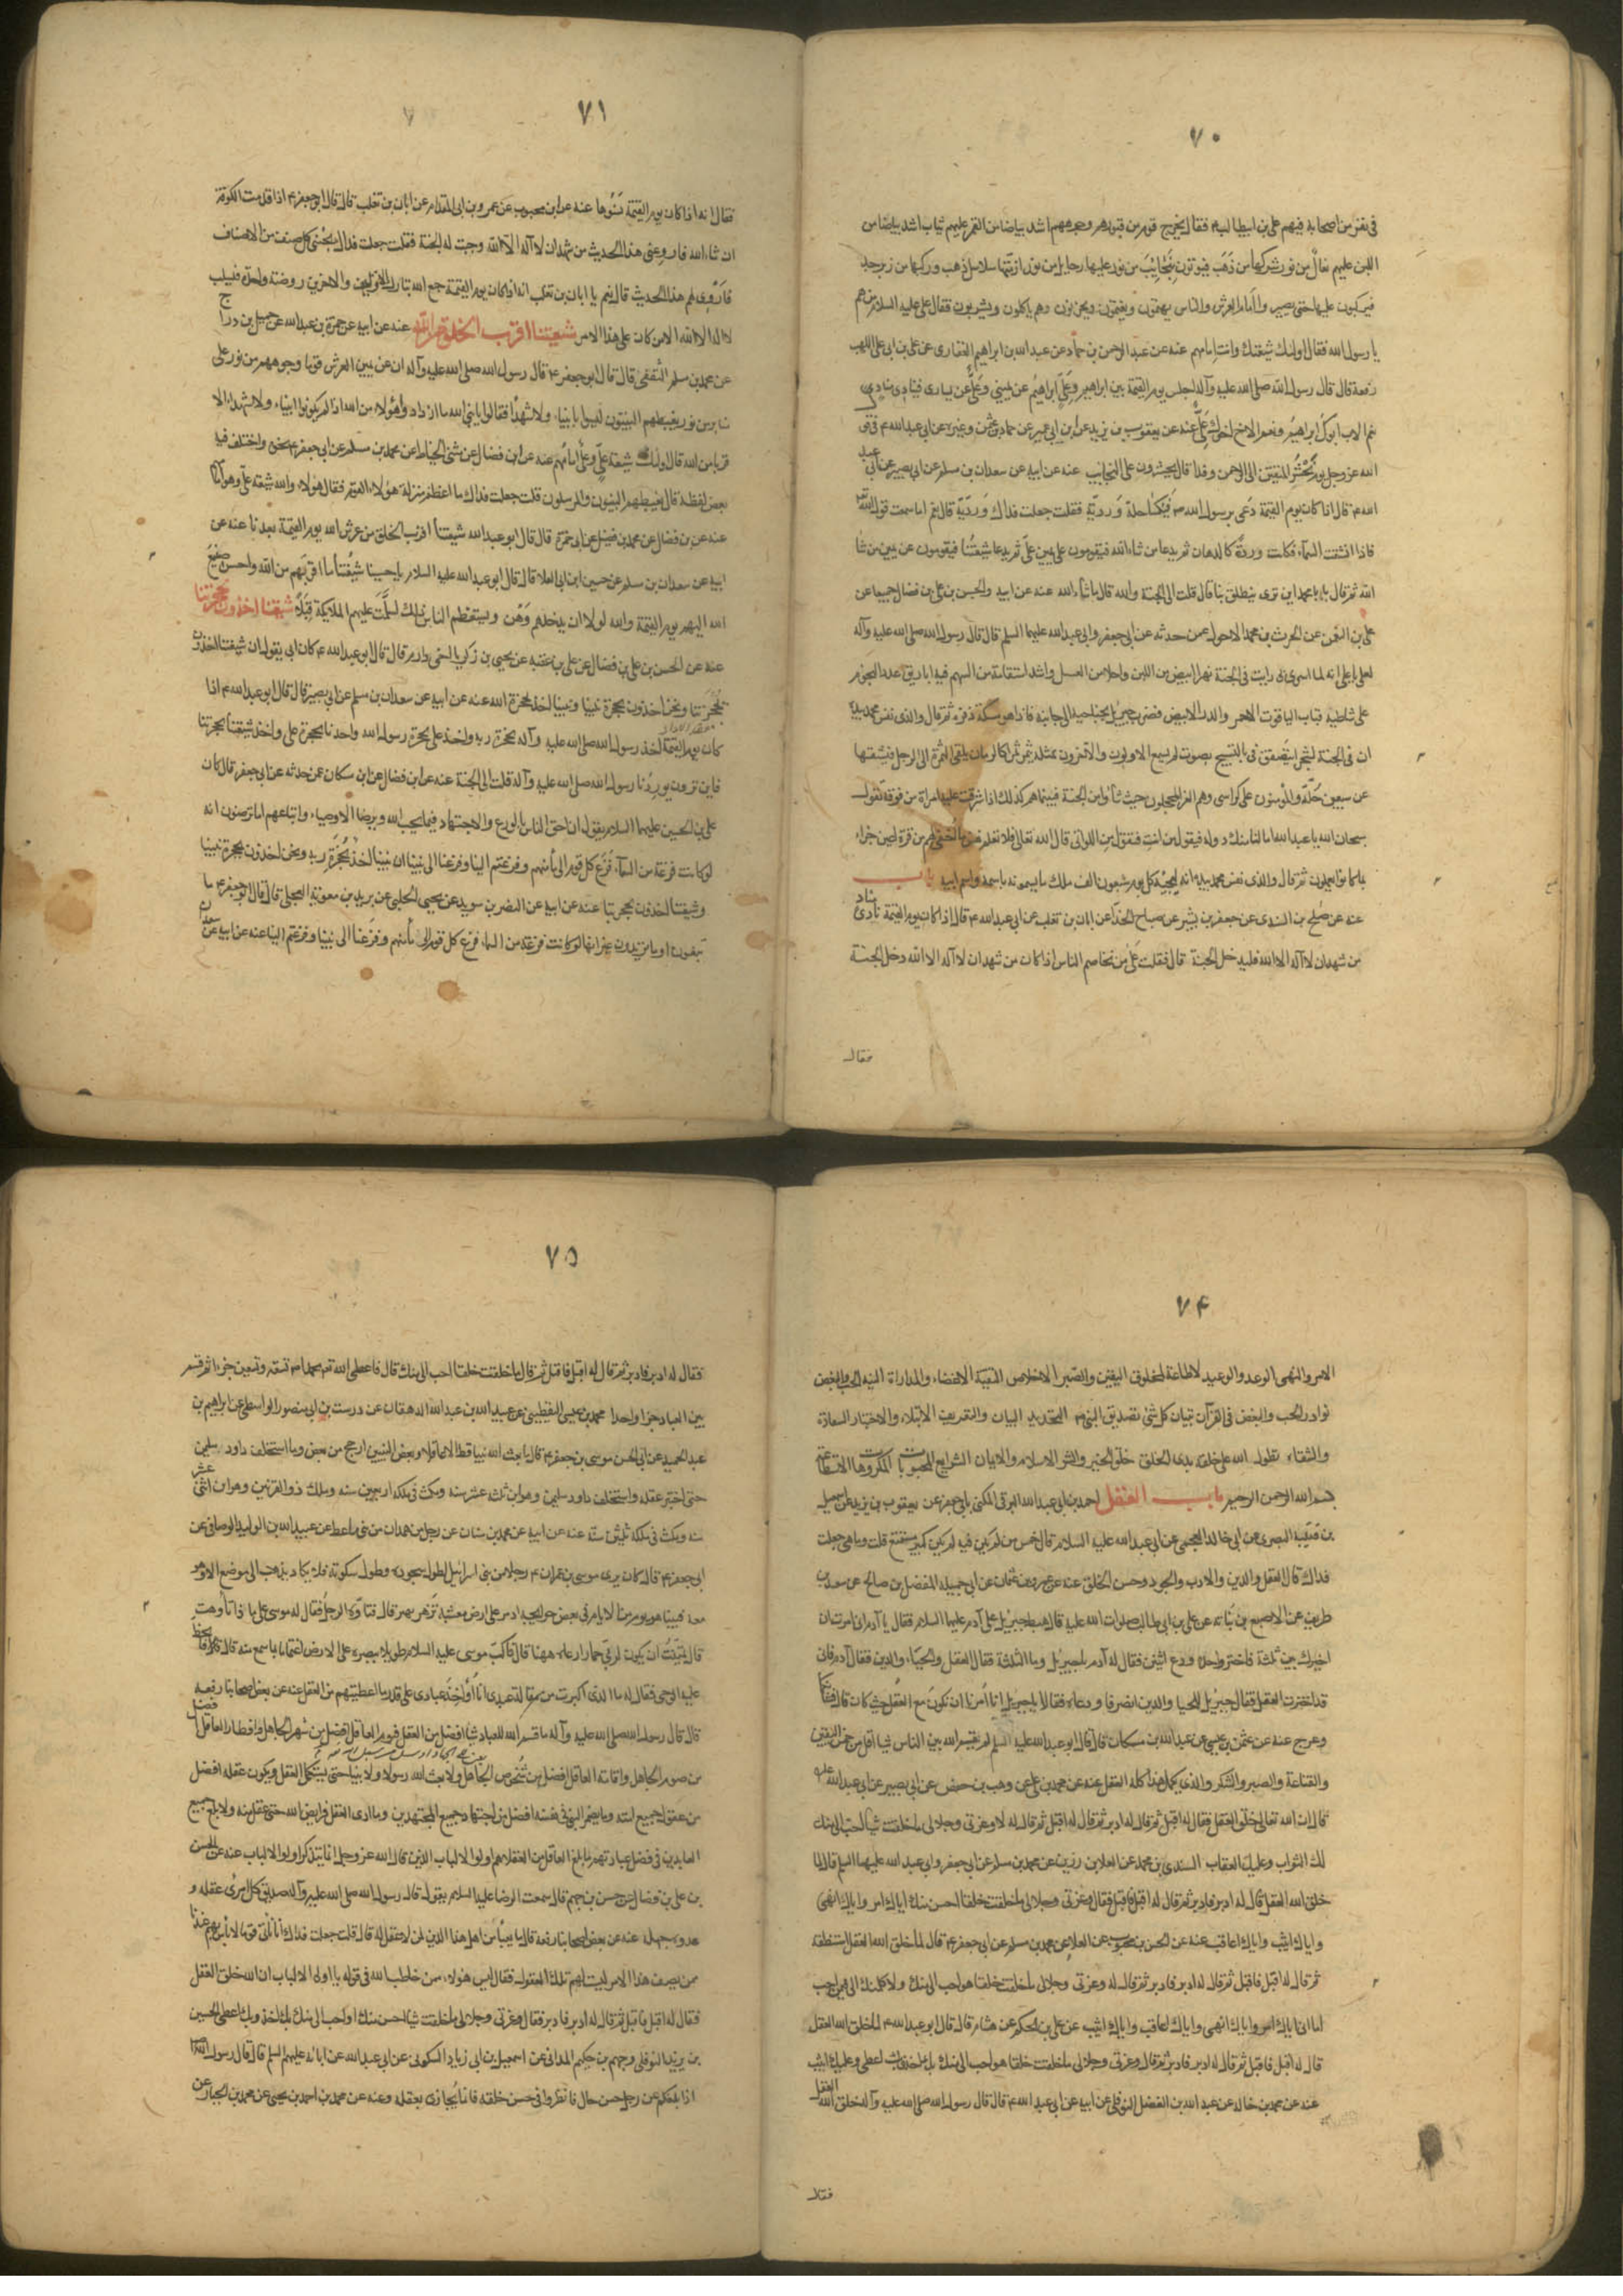 ٧٠
في نفر من اصحابه فيهم علي بن ابيطالب ع فقال يخرج قوم من قبورهم وجوههم اشد بياضا من القمر عليهم ثياب اشد بياضا من
اللبن عليهم نعال من نور شركها من ذهب فيؤتون بنجائب من نور عليها رحايل من نور ازمتها سلاسل ذهب وركبها من زبرجد
فيركبون عليها حتى يصير واامام العرش والناس يهتمون ويغتمون ويحزنون وهم ياكلون ويشربون فقال علي عليه السلام من هم
يا رسول الله فقال اولئك شيعتك وانت امامهم عنه عن عبد الرحمن بن حماد عن عبد الله بن ابراهيم الغفاري عن علي بن ابي علي اللهبي
رفعه قال قال رسول الله صلى الله عليه وآله اجلس يوم القيمة بين ابراهيم وعلي ابراهيم عن يميني وعلي عن يساري فينادي منادي
نعم الاب ابوك ابراهيم ونعم الاخ اخوك علي عنه عن يعقوب بن يزيد عن ابن ابي عمير عن حماد بن عثمن وغيره عن ابي عبد الله ع في قول
الله عز وجل يوم نحشر المتقين الى الرحمن وفدا قال يحشرون على النجائب عنه عن ابيه عن سعدان بن مسلم عن ابي بصير عن ابي عبد
الله ع قال اذا كان يوم القيمة دعي برسول الله ص فيكسا حلة وردية فقلت جعلت فداك وردية قال نعم اما سمعت قول الله
فاذا انشقت السماء فكانت وردة كالدهان ثم يدعا من شاء الله فيقومون على يمين علي ثم يدعا شيعتنا فيقومون عن يمين من شا
الله ثم قال يا با محمد اين ترى ينطلق بنا قال قلت الى الجنة والله قال ما شاء الله عنه عن ابيه والحسن بن علي بن فضال جميعا عن
علي بن النعمن عن الحرث بن محمد الاحول عمن حدثه عن ابي جعفر وابي عبد الله عليهما السلم قال قال رسول الله صلى الله عليه وآله
لعلي يا علي انه لما اسري بي رايت في الجنة نهرا ابيض من اللبن واحلا من العسل واشد استقامة من السهم فيه اباريق عدد النجوم
على شاطيه قباب الياقوت الاحمر والدر الابيض فضرب جبريل بجناحيه الى جانبه فاذا هو مسكة ذفرة ثم قال والذي نفس محمد بيده
ان في الجنة لشجرا يتصفق في التسبيح بصوت لم يسمع الاولون والآخرون بمثله يثمر ثمرا كالرمان يلقى الثمرة الى الرجل فيشقها
عن سبعين حلة والمؤمنون على كراسي وهم الغر المحجلون حيث شاؤا من الجنة فبينما هم كذلك اذا شرفت عليه امراة من فوقه تقول
سبحان الله يا عبد الله اما لنا منك دولة فيقول من انت فتقول من اللواتي قال الله تعالى فلا تعلم نفس ما اخفي لهم من قرة اعين جزاء
بما كانوا يعملون ثم قال والذي نفس محمد بيده انه ليجيئه كل يوم سبعون الف ملك ما يسمونه باسمه واسم ابيه باب
عنه عن صالح بن السندي عن جعفر بن بشير عن صباح الحذاء عن ابان بن تغلب عن ابي عبد الله ع قال اذا كان يوم القيمة نادى مناد
من شهد ان لا اله الا الله فليدخل الجنة قال فقلت على من تخاصم الناس اذا كان من شهد ان لا اله الا الله دخل الجنة
فقال
٧١
فقال انه اذا كان يوم القيمة نسوها عنه عن ابن محبوب عن عمرو بن ابي المقدام عن ابان بن تغلب قال قال ابو جعفر ع اذا قدمت الكوفة
ان شاء الله فارو عني هذا الحديث من شهد ان لا اله الا الله وجبت له الجنة فقلت جعلت فداك يجئني كل صنف من الاصناف
فاروي لهم هذا الحديث قال نعم يا ابان بن تغلب انه اذا كان يوم القيمة جمع الله تبارك الاولين والاخرين روضة واحدة فيسلب
لا اله الا الله الا من كان على هذا الامر شيعتنا اقرب الخلق من الله عنه عن ابيه عن حمزة بن عبد الله عن جميل بن دراج
عن محمد بن مسلم الثقفي قال قال ابو جعفر ع قال رسول الله صلى الله عليه وآله ان عن يمين العرش قوما وجوههم من نور على
منابر من نور يغبطهم النبيون ليسوا بانبياء ولا شهدا فقالوا يا نبي الله ما ازدادوا هؤلاء من الله اذا لم يكونوا انبياء ولا شهداء الا
قربا من الله قال اولئك شيعة علي وعلي امامهم عنه عن ابن فضال عن مثنى الحناط عن محمد بن مسلم عن ابي جعفر ع بنحوه واختلف فيه
بعض لفظه قال يغبطهم النبيون والمرسلون قلت جعلت فداك ما اعظم منزلة هؤلاء القوم فقال هؤلاء والله شيعة علي وهو امامهم
عنه عن بن فضال عن محمد بن فضيل عن ابي حمزة قال قال ابو عبد الله شيعتنا اقرب الخلق من عرش الله يوم القيمة بعدنا عنه عن
ابيه عن سعدان بن مسلم عن حسين ابن ابي العلا قال قال ابو عبد الله عليه السلام يا حسين شيعتنا ما اقربهم من الله واحسن صنيع
الله اليهم يوم القيمة والله لولا ان يدخلهم وهن ويستعظم الناس ذلك لسلمت عليهم الملايكة قبلا شيعتنا اخذون بحجزتنا
عنه عن الحسن بن علي بن فضال عن علي بن عقبة عن يحيى بن زكريا اخي دارم قال قال ابو عبد الله ع كان ابي يقول ان شيعتنا اخذون
بحجزتنا ونحن اخذون بحجزة نبينا ونبينا اخذ بحجزة الله عنه عن ابيه عن سعدان بن مسلم عن ابي بصير قال قال ابو عبد الله ع اذا
كان يوم القيمة اخذ رسول الله صلى الله عليه وآله بحجزة ربه واخذ علي بحجزة رسول الله واخذنا بحجزة علي واخذ شيعتنا بحجزتنا
فاين ترون يوردنا رسول الله صلى الله عليه وآله قلت الى الجنة عنه عن ابن فضال عن ابن مسكان عمن حدثه عن ابي جعفر قال كان
علي بن الحسين عليهما السلام يقول ان احق الناس بالورع والاجتهاد فيما يحب الله ويرضا الاوصياء واتباعهم اما ترضون انه
لو كانت فزعة من السماء فزع كل قوم الى مأمنهم وفزعتم الينا وفزعنا الى نبينا ان نبينا اخذ بحجزة ربه ونحن اخذون بحجزة نبينا
وشيعتنا اخذون بحجزتنا عنه عن ابيه عن النضر بن سويد عن يحيى الحلبي عن بريد بن معوية العجلي قال قال ابو جعفر ع ما
تبغون او ما تريدون غير انها لو كانت فزعة من السماء فزع كل قوم الى مأمنهم وفزعنا الى نبينا وفزعتم الينا عنه عن ابيه عن سعدان
٧۴
الامر والنهي الوعد والوعيد لا طاعة لمخلوق اليقين والصبر الاخلاص التقية الاغضاء والمداراة النية الحب والبغض
نوادر الحب والبغض في القرآن تبيان كل شي تصديق النبي ص التحديد البيان والتعريف الابتلاء والاختبار السعادة
والشقاء تطول الله على خلقه بدى الخلق خلق الخير والشر الاسلام والايمان الشرايع المحبوبات المكروهات الاستطاعة
بسم الله الرحمن الرحيم باب العقل احمد بن ابي عبد الله البرقي المكنى بابي جعفر عن يعقوب بن يزيد عن اسمعيل
بن قتيبة البصري عن ابي خالد العجمي عن ابي عبد الله عليه السلام قال خمس من لم يكن فيه لم يكن كثير مستمتع قلت وما هي جعلت
فداك قال العقل والدين والادب والجود وحسن الخلق عنه عن عمرو بن عثمان عن ابي جميلة المفضل بن صالح عن سعد بن
طريف عن الاصبغ بن نباته عن علي بن ابي طالب صلوات الله عليه قال هبط جبريل على آدم عليهما السلام فقال يا آدم اني امرت ان
اخيرك بين ثلثة فاختر واحدا ودع اثنين فقال له آدم يا جبريل وما الثلثة فقال العقل والحياء والدين فقال آدم فاني
قد اخترت العقل فقال جبريل للحيا والدين انصرفا ودعاه فقالا يا جبريل انا امرنا ان نكون مع العقل حيث كان قال فشأنكما
وعرج عنه عن عثمن بن عيسى عن عبد الله بن مسكان قال قال ابو عبد الله عليه السلم لم يقسم الله بين الناس شيا اقل من خمس اليقين
والقناعة والصبر والشكر والذي يكمل هذا كله العقل عنه عن محمد بن علي عن وهب بن حفص عن ابي بصير عن ابي عبد الله عليه
قال ان الله تعالى خلق العقل فقال له اقبل ثم قال له ادبر ثم قال له اقبل ثم قال له لا وعزتي وجلالي ما خلقت شيا احب الي منك
لك الثواب وعليك العقاب السندي بن محمد عن العلا بن رزين عن محمد بن مسلم عن ابي جعفر وابي عبد الله عليهما السلم قال لما
خلق الله العقل قال له ادبر فادبر ثم قال له اقبل فاقبل فقال وعزتي وجلالي ما خلقت خلقا احسن منك اياك امر واياك انهى
واياك اثيب واياك اعاقب عنه عن الحسن بن محبوب عن العلا عن محمد بن مسلم عن ابي جعفر ع قال لما خلق الله العقل استنطقه
ثم قال له اقبل فاقبل ثم قال له ادبر فادبر ثم قال له وعزتي وجلالي ما خلقت خلقا هو احب الي منك ولا اكملتك الا فيمن احب
اما اني اياك امر واياك انهى واياك اعاقب واياك اثيب عن علي بن الحكم عن هشام قال قال ابو عبد الله ع لما خلق الله العقل
قال له اقبل فاقبل ثم قال له ادبر فادبر ثم قال وعزتي وجلالي ما خلقت خلقا هو احب الي منك بك اخذ وبك اعطي وعليك اثيب
عنه عن محمد بن خالد عن عبد الله بن الفضل النوفلي عن ابيه عن ابي عبد الله ع قال قال رسول الله صلى الله عليه وآله خلق الله العقل
فقال
٧۵
فقال له ادبر فادبر ثم قال له اقبل فاقبل ثم قال ما خلقت خلقا احب الي منك قال فاعطى الله تعم محمدا ص تسعة وتسعين جزءا ثم قسم
بين العباد جزا واحدا محمد بن عيسى اليقطيني عن عبيد الله بن عبد الله الدهقان عن درست بن ابي منصور الواسطي عن ابراهيم بن
عبد الحميد عن ابي الحسن موسى بن جعفر ع قال ما بعث الله نبيا قط الا عاقلا وبعض النبيين ارجح من بعض وما استخلف داود سليمن
حتى اختبر عقله واستخلف داود سليمن وهو ابن ثلثة عشر سنه ومكث في ملكه اربعين سنه وملك ذو القرنين وهو ابن اثني عشر
سنه ومكث في ملكه ثلثين سنة عنه عن ابيه عن محمد بن سنان عن رجل من همدان عن عبيد الله بن الوليد الوصافي عن
ابي جعفر ع قال كان يرى موسى بن عمران ع رجلا من بني اسرائيل يطول سجوده ويطول سكوته فلا يكاد يذهب الى موضع الا وهو
معه فبينا هو يوم من الايام في بعض حوايجه اذ مر على ارض معشبة تزهر وتهتز قال فتاوه الرجل فقال له موسى على ما ذا تاوهت
قال تمنيت ان يكون لربي حمار ارعاه ههنا قال فاكب موسى عليه السلام طويلا ببصره على الارض اغتماما بما سمع منه قال فانحط
عليه الوحي فقال له ما الذي اكبرت من مقالة عبدي انا اؤاخذ عبادي على قدر ما اعطيتهم من العقل عنه عن بعض اصحابنا رفعه
قال قال رسول الله صلى الله عليه وآله ما قسم الله للعباد شيا افضل من العقل فنوم العاقل افضل من سهر الجاهل وافطار العاقل افضل
من صوم الجاهل واقامة العاقل افضل من شخوص الجاهل ولا بعث الله رسولا ولا نبيا حتى يستكمل العقل ويكون عقله افضل
من عقول جميع امته وما يضمر النبي في نفسه افضل من اجتهاد جميع المجتهدين وما ادى العقل فرايض الله حتى عقل منه ولا بلغ جميع
العابدين في فضل عبادتهم ما بلغ العاقل ان العقلا هم اولو الالباب الذين قال الله عز وجل انما يتذكر اولو الالباب عنه عن الحسن
بن علي بن فضال عن حسن بن جهم قال سمعت الرضا عليه السلام يقول قال رسول الله صلى الله عليه وآله صديق كل امرئ عقله و
عدوه جهله عنه عن بعض اصحابنا رفعه قال ما يعبأ من اهل هذا الدين لمن لا عقل له قال قلت جعلت فداك انا ناتي قوما لا باس بهم عندنا
ممن يصف هذا الامر ليست لهم تلك العقول فقال ليس هؤلاء ممن خاطب الله في قوله يا اولي الالباب ان الله خلق العقل
فقال له اقبل فاقبل ثم قال له ادبر فادبر فقال وعزتي وجلالي ما خلقت شيا احسن منك او احب الي منك بك اخذ وبك اعطي الحسين
بن يزيد النوفلي وجهم بن حكيم المدائني عن اسمعيل بن ابي زياد السكوني عن ابي عبد الله عن ابائه عليهم السلم قال قال رسول الله
اذا بلغكم عن رجل حسن حال فانظروا في حسن خلقه فانما يجازى بعقله وعنه عن محمد بن احمد بن يحيى عن محمد بن عبد الجبار عن